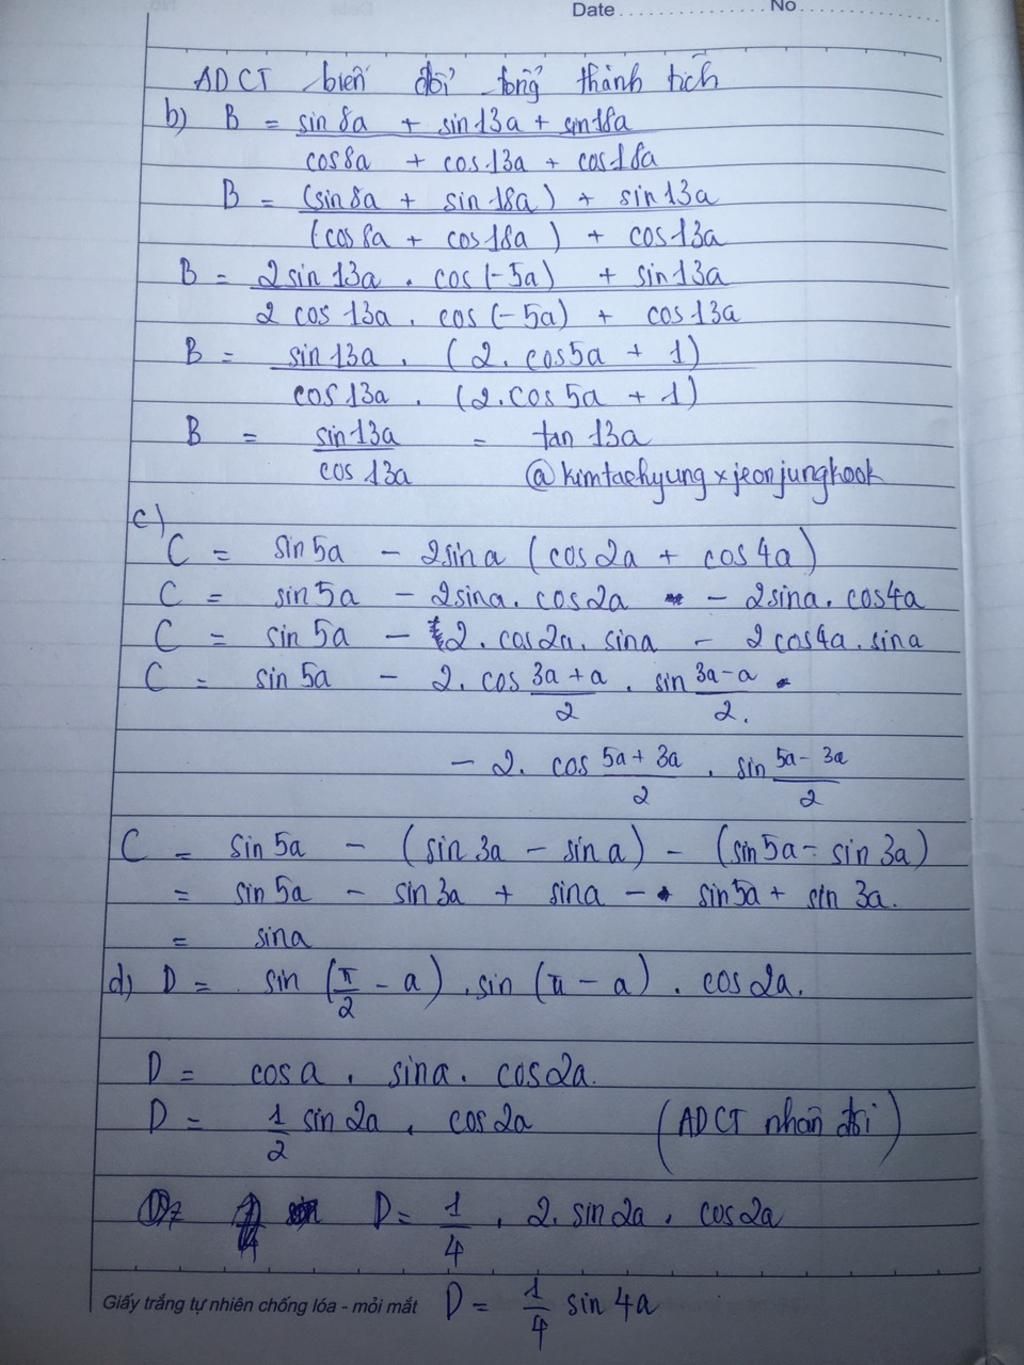 Date No
ADCT biến đổi tổng thành tích
b) B = sin 8a + sin 13a + sin 18a
cos 8a + cos 13a + cos 18a
B = (sin 8a + sin 18a) + sin 13a
(cos 8a + cos 18a) + cos 13a
B = 2 sin 13a . cos (-5a) + sin 13a
2 cos 13a . cos (-5a) + cos 13a
B = sin 13a . (2. cos5a + 1)
cos 13a . (2.cos 5a + 1)
B = sin 13a = tan 13a
cos 13a @kimtaehyung x jeonjungkook
c)
C = sin 5a - 2 sin a (cos 2a + cos 4a)
C = sin 5a - 2 sin a. cos 2a - 2 sin a. cos 4a
C = sin 5a - 2. cos 2a. sin a - 2 cos 4a . sin a
C = sin 5a - 2. cos 3a + a . sin 3a - a
2 2.
- 2. cos 5a + 3a . sin 5a - 3a
2 2
C = sin 5a - (sin 3a - sin a) - (sin 5a - sin 3a)
= sin 5a - sin 3a + sin a - sin 5a + sin 3a.
= sin a
d) D = sin (π/2 - a) . sin (π - a) . cos 2a.
D = cos a . sin a. cos 2a.
D = 1/2 sin 2a . cos 2a (ADCT nhân đôi)
D = 1/4 . 2. sin 2a . cos 2a
Giấy trắng tự nhiên chống lóa - mỏi mắt D = 1/4 sin 4a